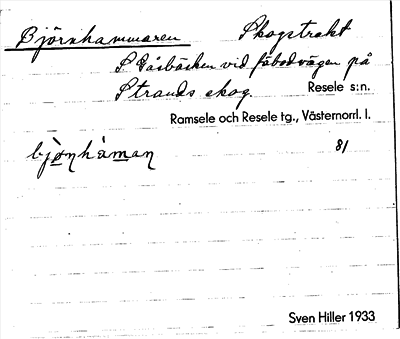 Björnhammaren Skogstrakt
S Gåsbäcken vid fäbodvägen på
Strands skog. Resele s:n.
Ramsele och Resele tg., Västernorrl. l.
bjø̀ŋhàman 81
Sven Hiller 1933